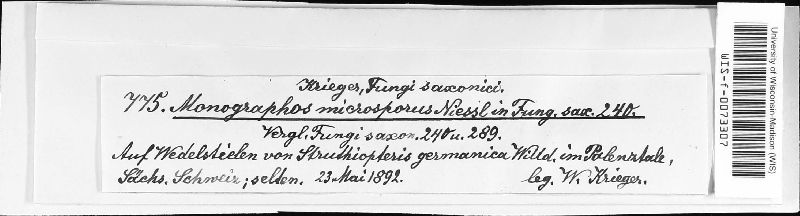 Krieger, Fungi saxonici.
775. Monographos microsporus Niessl in Fung. sax. 240.
Vergl. Fungi saxon. 240 u. 289.
Auf Wedelstielen von Struthiopteris germanica Willd. im Polenztale,
Sächs. Schweiz; selten. 23. Mai 1892. leg. W. Krieger.
University of Wisconsin-Madison (WIS)
WIS-f-0073307